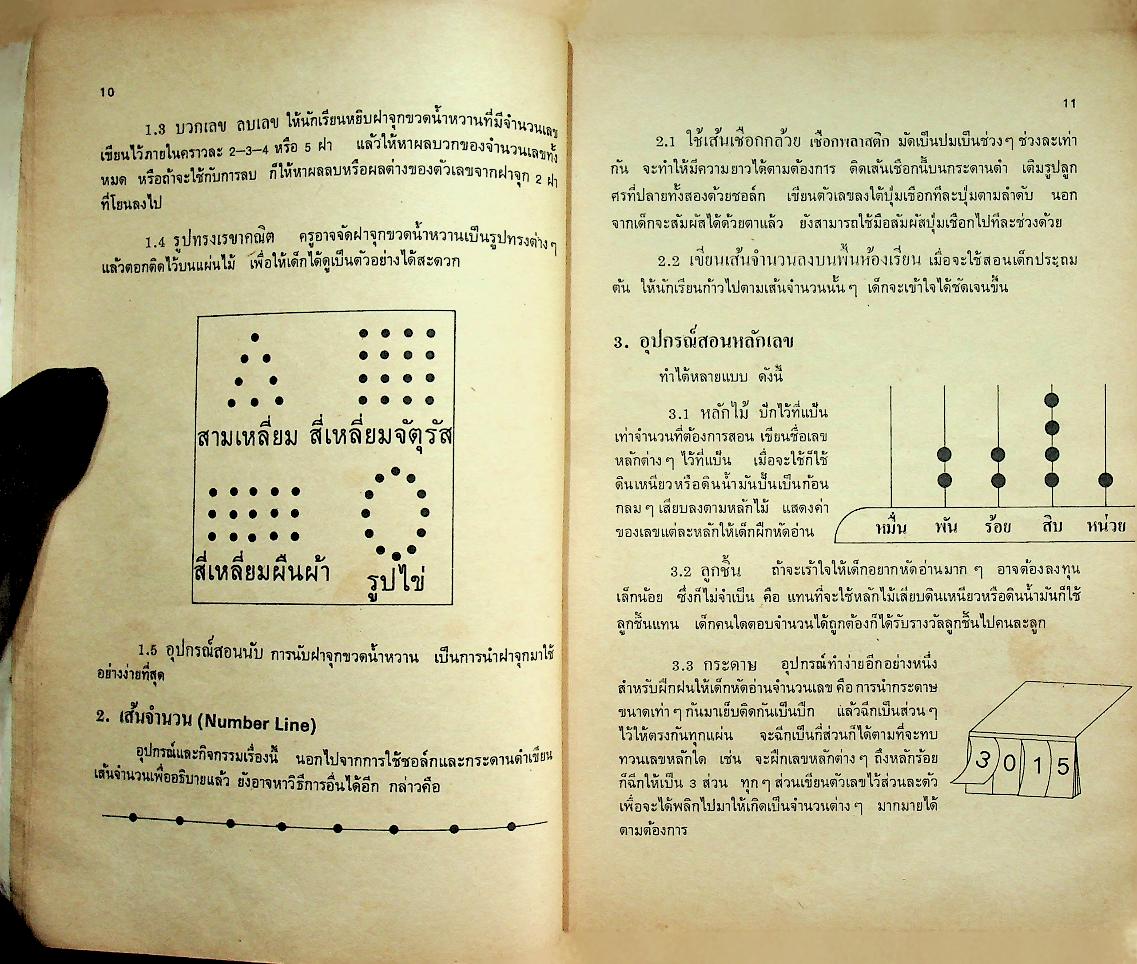 10
1.3 บวกเลข ลบเลข ให้นักเรียนหยิบฝาจุกขวดน้ำหวานที่มีจำนวนเลข
เขียนไว้ภายในคราวละ 2–3–4 หรือ 5 ฝา แล้วให้หาผลบวกของจำนวนเลขทั้ง
หมด หรือถ้าจะใช้กับการลบ ก็ให้หาผลลบหรือผลต่างของตัวเลขจากฝาจุก 2 ฝา
ที่โยนลงไป
1.4 รูปทรงเรขาคณิต ครูอาจจัดฝาจุกขวดน้ำหวานเป็นรูปทรงต่าง ๆ
แล้วตอกติดไว้บนแผ่นไม้ เพื่อให้เด็กได้ดูเป็นตัวอย่างได้สะดวก
สามเหลี่ยม สี่เหลี่ยมจัตุรัส
สี่เหลี่ยมผืนผ้า
รูปไข่
1.5 อุปกรณ์สอนนับ การนับฝาจุกขวดน้ำหวาน เป็นการนำฝาจุกมาใช้
อย่างง่ายที่สุด
2. เส้นจำนวน (Number Line)
อุปกรณ์และกิจกรรมเรื่องนี้ นอกไปจากการใช้ชอล์กและกระดานดำเขียน
เส้นจำนวนเพื่ออธิบายแล้ว ยังอาจหาวิธีการอื่นได้อีก กล่าวคือ
11
2.1 ใช้เส้นเชือกกล้วย เชือกพลาสติก มัดเป็นปมเป็นช่วง ๆ ช่วงละเท่า
กัน จะทำให้มีความยาวได้ตามต้องการ ติดเส้นเชือกนี้บนกระดานดำ เติมรูปลูก
ศรที่ปลายทั้งสองด้วยชอล์ก เขียนตัวเลขลงใต้ปุ่มเชือกทีละปุ่มตามลำดับ นอก
จากเด็กจะสัมผัสได้ด้วยตาแล้ว ยังสามารถใช้มือสัมผัสปุ่มเชือกไปทีละช่วงด้วย
2.2 เขียนเส้นจำนวนลงบนพื้นห้องเรียน เมื่อจะใช้สอนเด็กประถม
ต้น ให้นักเรียนก้าวไปตามเส้นจำนวนนั้น ๆ เด็กจะเข้าใจได้ชัดเจนขึ้น
3. อุปกรณ์สอนหลักเลข
ทำได้หลายแบบ ดังนี้
3.1 หลักไม้ ปักไว้ที่แป้น
เท่าจำนวนที่ต้องการสอน เขียนชื่อเลข
หลักต่าง ๆ ไว้ที่แป้น เมื่อจะใช้ก็ใช้
ดินเหนียวหรือดินน้ำมันปั้นเป็นก้อน
กลม ๆ เสียบลงตามหลักไม้ แสดงค่า
ของเลขแต่ละหลักให้เด็กฝึกหัดอ่าน
หมื่น พัน ร้อย สิบ หน่วย
3.2 ลูกชิ้น ถ้าจะเร้าใจให้เด็กอยากหัดอ่านมาก ๆ อาจต้องลงทุน
เล็กน้อย ซึ่งก็ไม่จำเป็น คือ แทนที่จะใช้หลักไม้เสียบดินเหนียวหรือดินน้ำมันก็ใช้
ลูกชิ้นแทน เด็กคนใดตอบจำนวนได้ถูกต้องก็ได้รับรางวัลลูกชิ้นไปคนละลูก
3.3 กระดาษ อุปกรณ์ทำง่ายอีกอย่างหนึ่ง
สำหรับฝึกฝนให้เด็กหัดอ่านจำนวนเลข คือ การนำกระดาษ
ขนาดเท่า ๆ กันมาเย็บติดกันเป็นปึก แล้วฉีกเป็นส่วน ๆ
ไว้ให้ตรงกันทุกแผ่น จะฉีกเป็นกี่ส่วนก็ได้ตามที่จะทบ
ทวนเลขหลักใด เช่น จะฝึกเลขหลักต่าง ๆ ถึงหลักร้อย
ก็ฉีกให้เป็น 3 ส่วน ทุก ๆ ส่วนเขียนตัวเลขไว้ส่วนละตัว
เพื่อจะได้พลิกไปมาให้เกิดเป็นจำนวนต่าง ๆ มากมายได้
ตามต้องการ
3 0 1 5